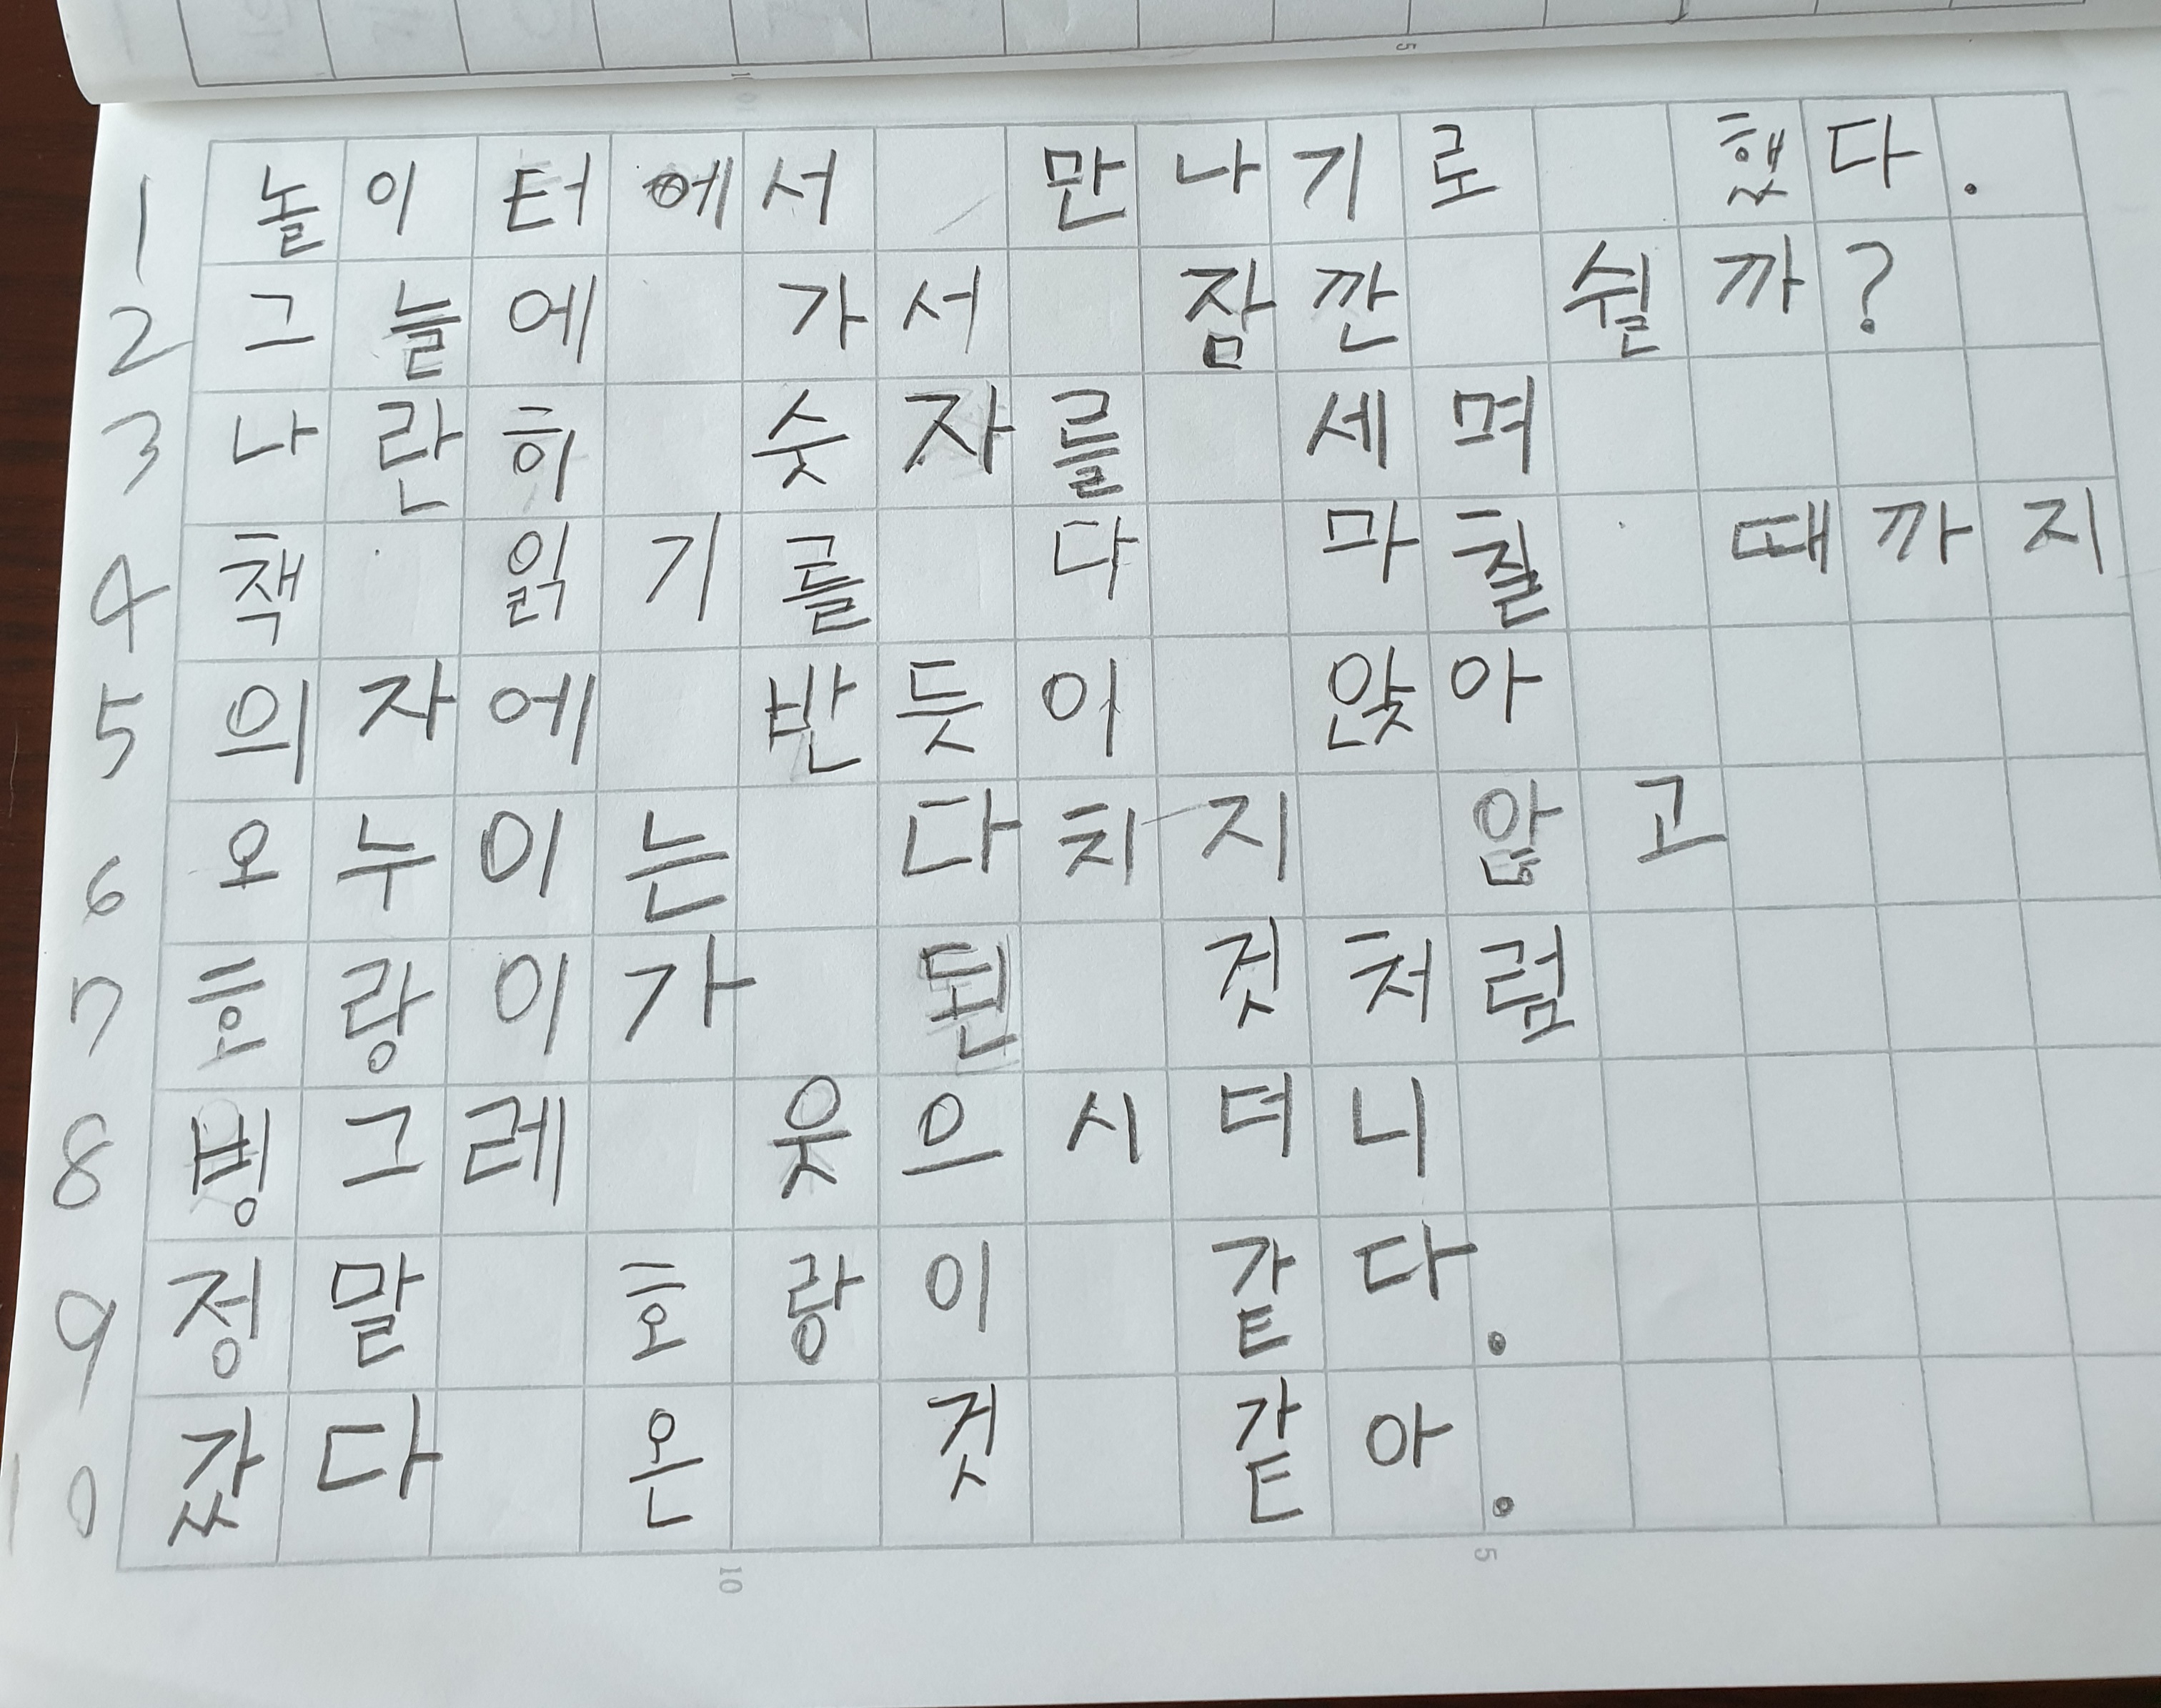 1 놀이터에서 만나기로 했다.
2 그늘에 가서 잠깐 쉴까?
3 나란히 숫자를 세며
4 책 읽기를 다 마칠 때까지
5 의자에 반듯이 앉아
6 오누이는 다치지 않고
7 호랑이가 된 것처럼
8 벙그레 웃으시더니
9 정말 호랑이 같다.
10 갔다 온 것 같아.
10 5